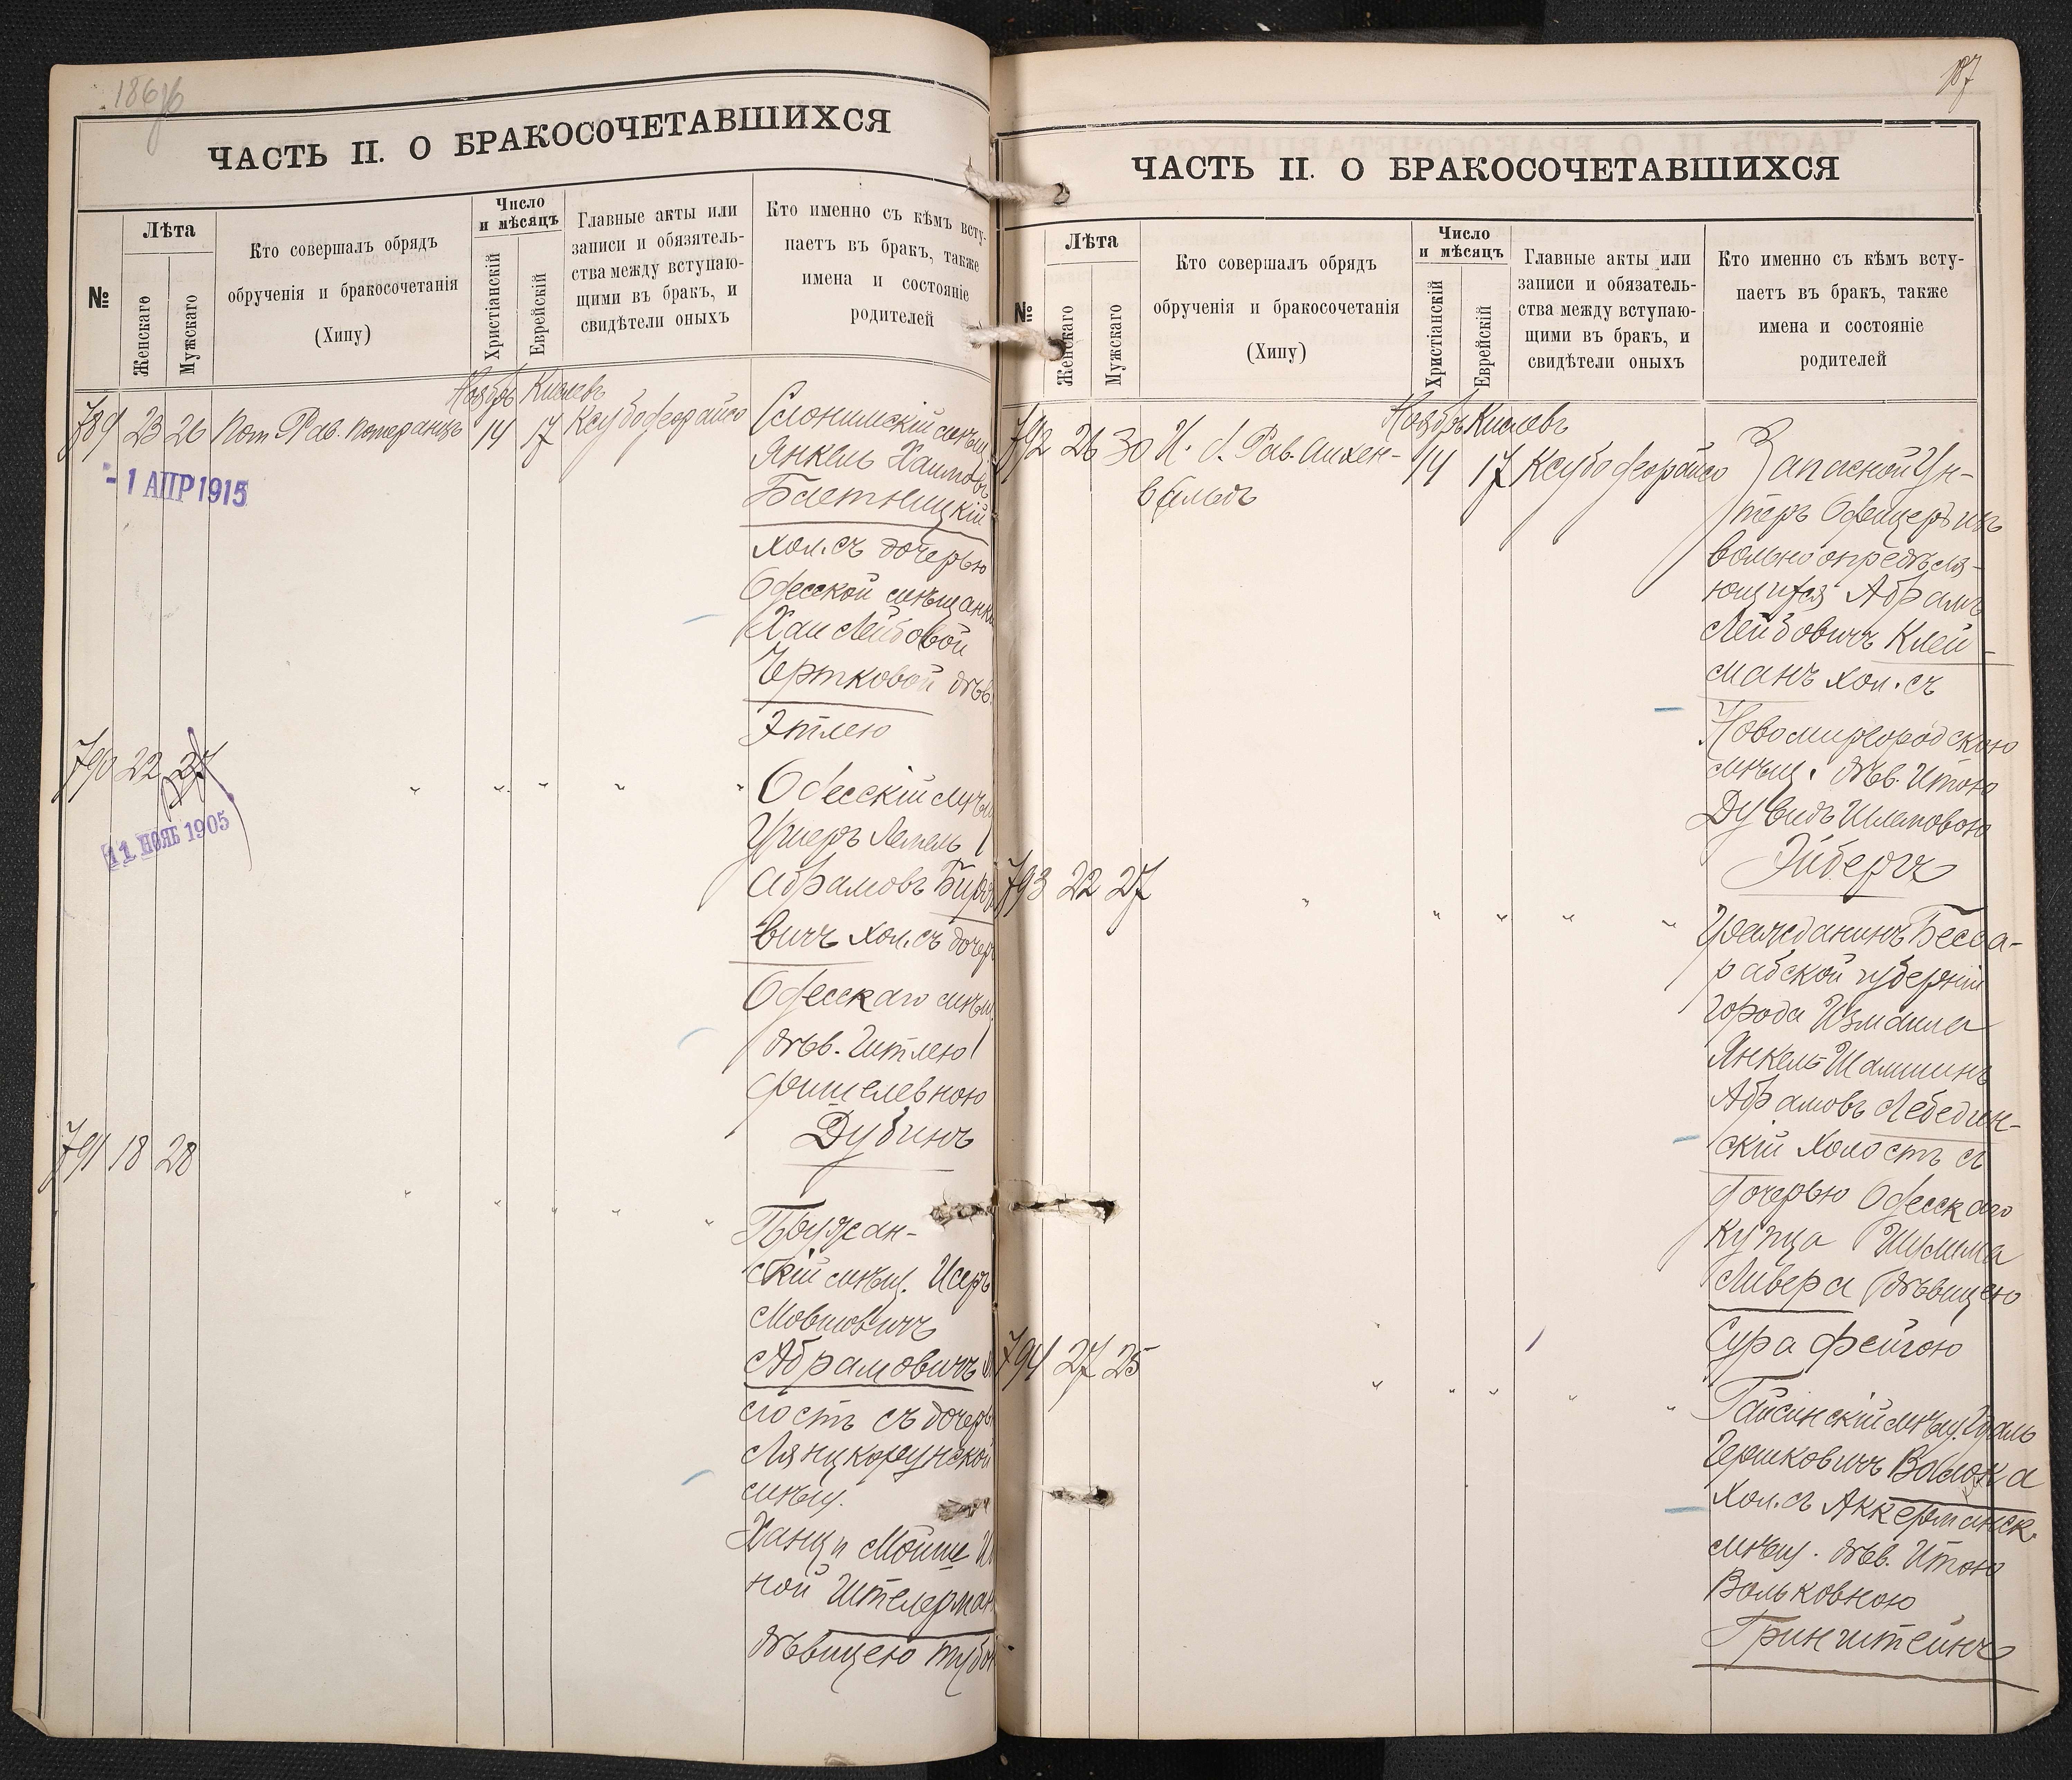 ЧАСТЬ II. О БРАКОСОЧЕТАВШИХСЯ
№
Лѣта
Женскаго
Мужскаго
Кто совершалъ обрядъ
обрученія и бракосочетанія
(Хипу)
Число
и мѣсяцъ
Христіанскій
Еврейскій
Главные акты или
записи и обязятель-
ства между вступаю-
щими въ бракъ, и
свидѣтели оныхъ
Кто именно съ кѣмъ всту-
паетъ въ бракъ, также
имена и состояніе
родителей
Ноябрь Кислевъ
789 23 26 Пом. Рав. Померанцъ 14 17
Слонимскій мѣщ.
Янкель Хаимовъ
- 1 АПР 1915
хол. съ дочерью
Одесской мѣщанки
Хаи Лейбовой
Чертковой дѣв.
Этлею
790 22 27 " " " " "
11 НОЯБ 1905
Одесскій мѣщ.
Ушеръ Лемель
Абрамовъ
вичъ хол. съ дочер
Одесскаго мѣщ.
дѣв. Итлею
Фишелевною
Дубинъ
791 18 28 " " " " "
Пружан-
скій мѣщ. Исеръ
Мовшовичъ
Абрамовичъ
лость съ дочерь
Лянцкорунской
мѣщ.
Мойше
ной Штелерман
дѣвицею
187
ЧАСТЬ II. О БРАКОСОЧЕТАВШИХСЯ
№
Лѣта
Женскаго
Мужскаго
Кто совершалъ обрядъ
обрученія и бракосочетанія
(Хипу)
Число
и мѣсяцъ
Христіанскій
Еврейскій
Главные акты или
записи и обязатель-
ства между вступаю-
щими въ бракъ, и
свидѣтели оныхъ
Кто именно съ кѣмъ всту-
паетъ въ бракъ, также
имена и состояніе
родителей
Ноябрь Кислевъ
792 26 30 И. д. Рав. Айхен-
вальдъ
14 17
Запасной Ун-
теръ Офицеръ изъ
вольноопредѣля-
ющихся Абрамъ
Лейбовичъ Клей-
манъ хол. съ
Новомиргородскою
мѣщ. дѣв. Итою
Дувидъ Шлемовою
Эйберъ
793 22 27 " " " " "
Гражданинъ Бесса-
рабской губерніи
города Измаила
Янкель Шамшинъ
Абрамовъ Лебедин-
скій холостъ съ
дочерью Одесскаго
купца Шулима
Ливера дѣвицею
Сура Фейгою
794 27 25 " " " " "
Гайсинскій мѣщ. Гдаль
Гершковичъ Волока
хол. съ Аккерманск.
мѣщ. дѣв. Итою
Вольковною
Гринштейнъ